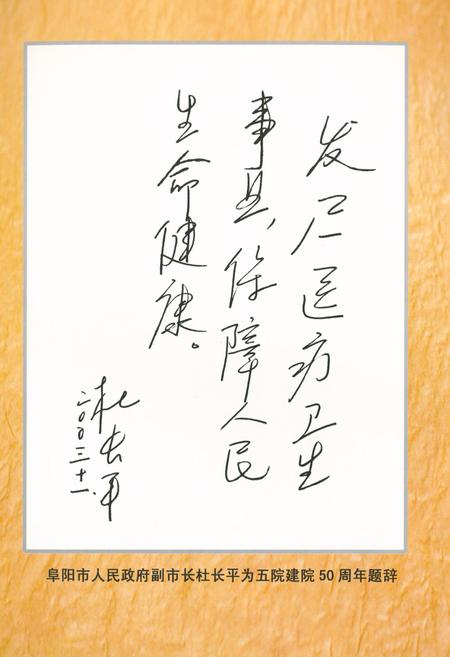 发展医疗卫生
事业，保障人民
生命健康。
杜长平
二〇〇三.十一.
阜阳市人民政府副市长杜长平为五院建院50周年题辞